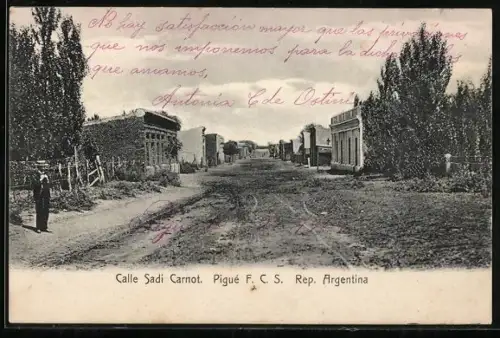 No hay satisfacción mayor que las privaciones
que nos imponemos para la
que amamos.
Antonia C de Ostini
Calle Sadi Carnot. Pigué F. C. S. Rep. Argentina